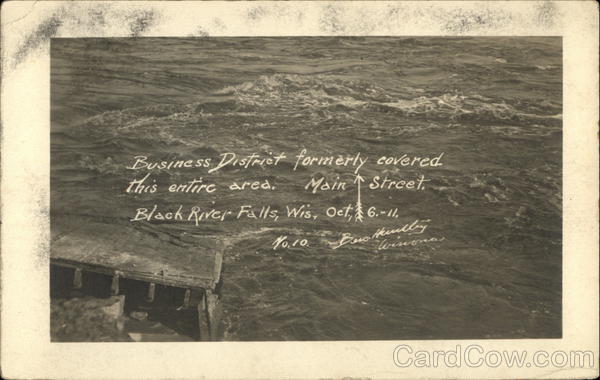 Business District formerly covered
this entire area. Main Street.
Black River Falls, Wis, Oct, 6.-11.
No. 10
Winona
CardCow.com